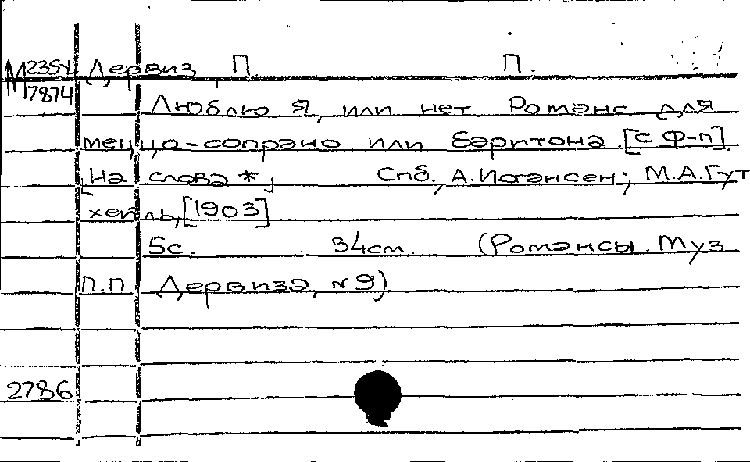 М 2354 Дервиз, П. П.
7874
Люблю я, или нет. Романс для
меццо-сопрано или баритона [с ф-п]
[на слова *] Спб, А. Иогансен; М. А. Гут
хейль, [1903]
5с. 34см. (Романсы. Муз
П.П. Дервиза, №9)
2786